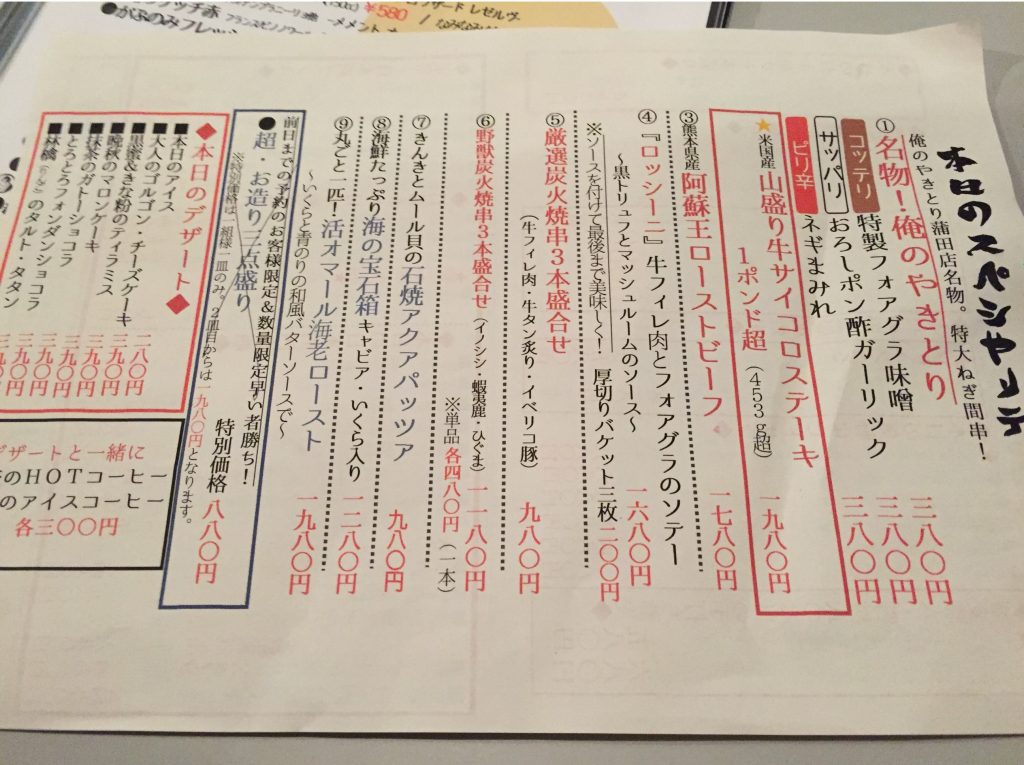 本日のスペシャリテ
俺のやきとり蒲田店名物。特大ねぎ間串！
①名物！俺のやきとり
コッテリ 特製フォアグラ味噌 三八〇円
サッパリ おろしポン酢ガーリック 三八〇円
ピリ辛 ネギまみれ 三八〇円
★米国産 山盛り牛サイコロステーキ
１ポンド超（453g超） 一九八〇円
③熊本県産 阿蘇王ローストビーフ 一七八〇円
④『ロッシーニ』牛フィレ肉とフォアグラのソテー
～黒トリュフとマッシュルームのソース～ 一六八〇円
※ソースを付けて最後まで美味し～く！ 厚切りバケット三枚 二〇〇円
⑤厳選炭火焼串３本盛合せ
（牛フィレ肉・牛タン炙り・イベリコ豚） 九八〇円
⑥野獣炭火焼串３本盛合せ（イノシシ・蝦夷鹿・ひぐま） 一一八〇円
※単品 各四八〇円（一本）
⑦きんきとムール貝の石焼アクアパッツア 九八〇円
⑧海鮮たっぷり海の宝石箱 キャビア・いくら入り 一二八〇円
⑨丸ごと一匹！活オマール海老ロースト
～いくらと青のりの和風バターソースで～ 一九八〇円
前日までの予約のお客様限定＆数量限定早い者勝ち！
●超・お造り三点盛り 特別価格 八八〇円
※特別価格は一組様一皿のみ。２皿目からは一九八〇円となります。
◆本日のデザート◆
■本日のアイス 二八〇円
■大人のゴルゴン・チーズケーキ 三九〇円
■黒蜜＆きな粉のティラミス 三九〇円
■晩秋のマロンケーキ 三九〇円
■抹茶のガトーショコラ 三九〇円
■とろとろフォンダンショコラ
■林檎のタルト・タタン
デザートと一緒に
のHOTコーヒー
のアイスコーヒー
各三〇〇円
¥580
●がぶのみフレッシ